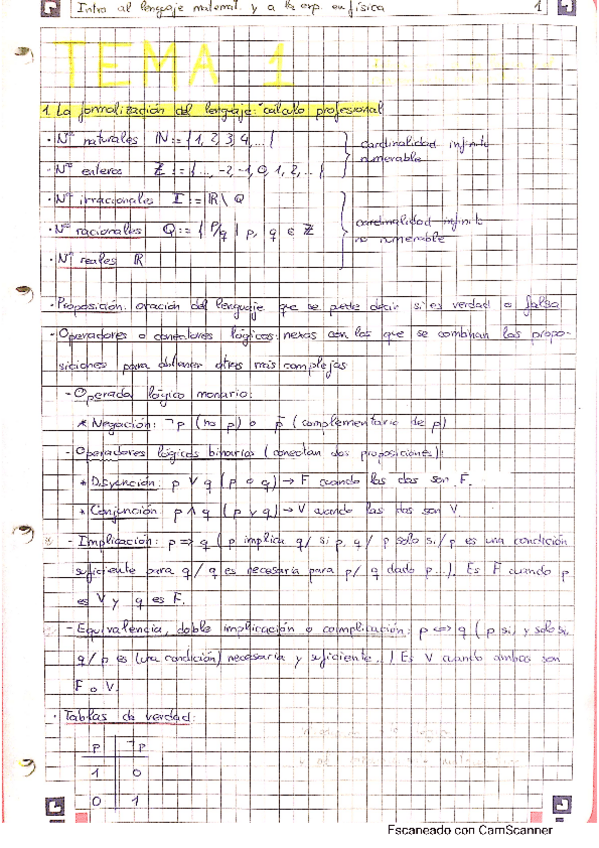 Intro al lenguaje matemat. y a las exp. en física 1
TEMA 1
1. La formalización del lenguaje: cálculo profesional
· Nos naturales ℕ := {1, 2, 3, 4, ...} cardinalidad infinita
numerable
· Nos enteros ℤ := {..., -2, -1, 0, 1, 2, ...}
· Nos irracionales I := ℝ \ Q
· Nos racionales Q := { p/q | p, q ∈ ℤ cardinalidad infinita
no numerable
· Nos reales ℝ
· Proposición: oración del lenguaje que se puede decir si es verdad o falso
· Operadores o conectores lógicos: nexos con los que se combinan las propo-
siciones para obtener otras más complejas
- Operador lógico monario:
* Negación: ¬p (no p) o p̄ (complementario de p)
- Operadores lógicos binarios (conectan dos proposiciones):
* Disyunción: p ∨ q (p o q) → F cuando las dos son F.
* Conjunción p ∧ q (p y q) → V cuando las dos son V.
- Implicación: p => q (p implica q/ si p, q/ p solo si/ p es una condición
suficiente para q/ q es necesaria para p/ q dado p...). Es F cuando p
es V y q es F.
- Equivalencia, doble implicación o coimplicación: p <=> q (p si, y solo si,
q/ p es (una condición) necesaria y suficiente...) Es V cuando ambos son
F o V.
· Tablas de verdad:
p ¬p
1 0
0 1
Escaneado con CamScanner